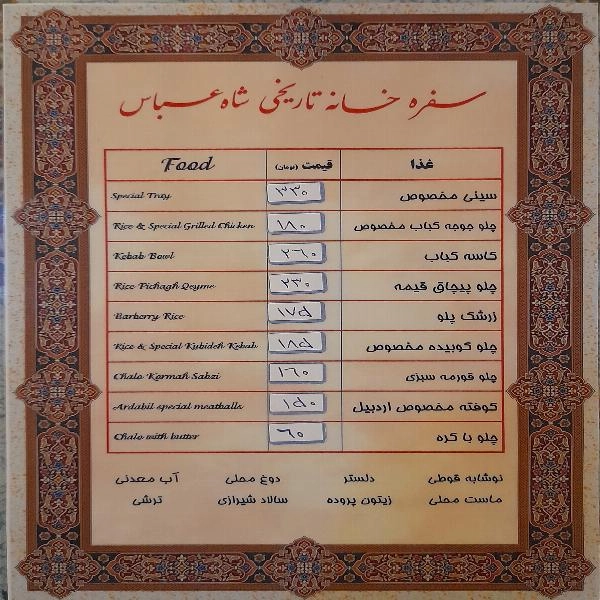 سفره خانه تاریخی شاه عباس
غذا قیمت (تومان) Food
سینی مخصوص ۳۳۰ Special Tray
چلو جوجه کباب مخصوص ۱۸۰ Rice & Special Grilled Chicken
کاسه کباب ۲۶۰ Kebab Bowl
چلو پیچاق قیمه ۲۳۰ Rice Pichagh Qeyme
زرشک پلو ۱۷۵ Barberry Rice
چلو کوبیده مخصوص ۱۸۵ Rice & Special Kubideh Kebab
چلو قورمه سبزی ۱۶۰ Chalo Kormah Sabzi
کوفته مخصوص اردبیل ۱۵۰ Ardabil special meatballs
چلو با کره ۶۰ Chalo with butter
نوشابه قوطی دلستر دوغ محلی آب معدنی
ماست محلی زیتون پروده سالاد شیرازی ترشی